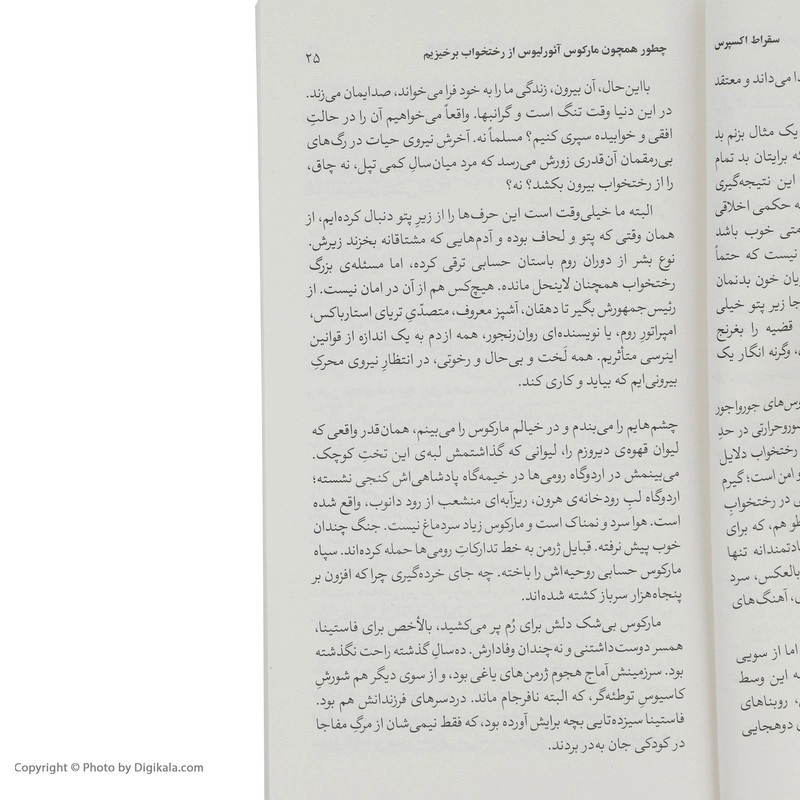 سقراط اکسپرس
دا می‌داند و معتقد
یک مثال بزنم بد
که برایتان بد تمام
این نتیجه‌گیری
ه حکمی اخلاقی
متی خوب باشد
نیست که حتماً
یان خون بدنمان
جا زیر پتو خیلی
قضیه را بغرنج
، وگرنه انگار یک
وس‌های جورواجور
سوروحرارتی در حدِ
رختخواب دلایل
و امن است؛ گیرم
ی در رختخوابِ
طو هم، که برای
ادتمندانه تنها
بالعکس، سرد
ں، آهنگ‌های
اما از سویی
ه این وسط
، روبناهای
ی دوهجایی
چطور همچون مارکوس آئورلیوس از رختخواب برخیزیم ۲۵
بااین‌حال، آن بیرون، زندگی ما را به خود فرا می‌خواند، صدایمان می‌زند.
در این دنیا وقت تنگ است و گرانبها. واقعاً می‌خواهیم آن را در حالتِ
افقی و خوابیده سپری کنیم؟ مسلماً نه. آخرش نیروی حیات در رگ‌های
بی‌رمقمان آن‌قدری زورش می‌رسد که مرد میان‌سالِ کمی تپل، نه چاق،
را از رختخواب بیرون بکشد؟ نه؟
البته ما خیلی‌وقت است این حرف‌ها را از زیرِ پتو دنبال کرده‌ایم، از
همان وقتی که پتو و لحاف بوده و آدم‌هایی که مشتاقانه بخزند زیرش.
نوع بشر از دوران روم باستان حسابی ترقی کرده، اما مسئله‌ی بزرگ
رختخواب همچنان لاینحل مانده. هیچ‌کس هم از آن در امان نیست. از
رئیس‌جمهورش بگیر تا دهقان، آشپز معروف، متصدّیِ تریای استارباکس،
امپراتورِ روم، یا نویسنده‌ای روان‌رنجور، همه ازدم به یک اندازه از قوانین
اینرسی متأثریم. همه لَخت و بی‌حال و رخوتی، در انتظارِ نیروی محرکِ
بیرونی‌ایم که بیاید و کاری کند.
چشم‌هایم را می‌بندم و در خیالم مارکوس را می‌بینم، همان‌قدر واقعی که
لیوان قهوه‌ی دیروزم را، لیوانی که گذاشتمش لبه‌ی این تختِ کوچک.
می‌بینمش در اردوگاه رومی‌ها در خیمه‌گاه پادشاهی‌اش کنجی نشسته؛
اردوگاه لبِ رودخانه‌ی هرون، ریزآبه‌ای منشعب از رود دانوب، واقع شده
است. هوا سرد و نمناک است و مارکوس زیاد سردماغ نیست. جنگ چندان
خوب پیش نرفته. قبایل ژرمن به خط تدارکاتِ رومی‌ها حمله کرده‌اند. سپاه
مارکوس حسابی روحیه‌اش را باخته. چه جای خرده‌گیری چرا که افزون بر
پنجاه‌هزار سرباز کشته شده‌اند.
مارکوس بی‌شک دلش برای رُم پر می‌کشید، بالأخص برای فاستینا،
همسر دوست‌داشتنی و نه‌چندان وفادارش. ده‌سالِ گذشته راحت نگذشته
بود. سرزمینش آماج هجوم ژرمن‌های یاغی بود، و از سوی دیگر هم شورشِ
کاسیوسِ توطئه‌گر، که البته نافرجام ماند. دردسرهای فرزندانش هم بود.
فاستینا سیزده‌تایی بچه برایش آورده بود، که فقط نیمی‌شان از مرگِ مفاجا
در کودکی جان به‌در بردند.
Copyright © Photo by Digikala.com